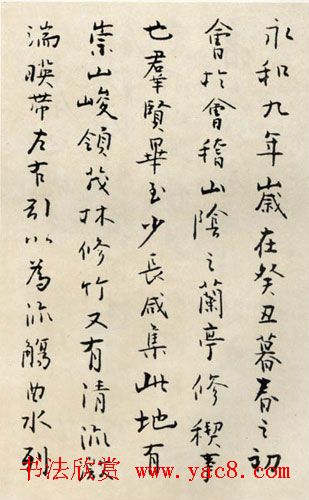 永和九年歲在癸丑暮春之初
會於會稽山陰之蘭亭修禊事
也羣賢畢至少長咸集此地有
崇山峻領茂林修竹又有清流激
湍暎帶左右引以為流觴曲水列
书法欣赏 www.yac8.com